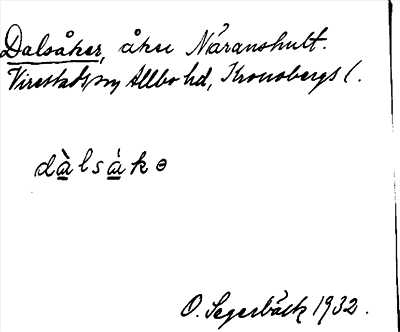 Dalsåker, åker Náranshult.
Virestads sn, Allbo hd, Kronobergs l.
dàlsákɵ
O. Segerbäck 1932.